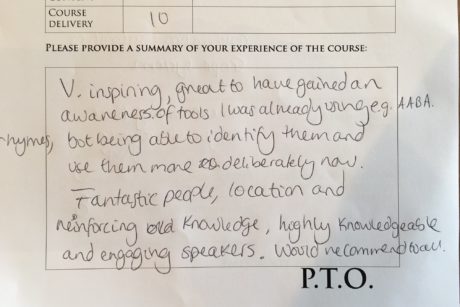 COURSE
DELIVERY
10
PLEASE PROVIDE A SUMMARY OF YOUR EXPERIENCE OF THE COURSE:
V. inspiring, great to have gained an
awareness of tools I was already using e.g. AABA
rhymes, but being able to identify them and
use them more deliberately now.
Fantastic people, location and
reinforcing old knowledge, highly knowledgeable
and engaging speakers. Would recommend to all.
P.T.O.